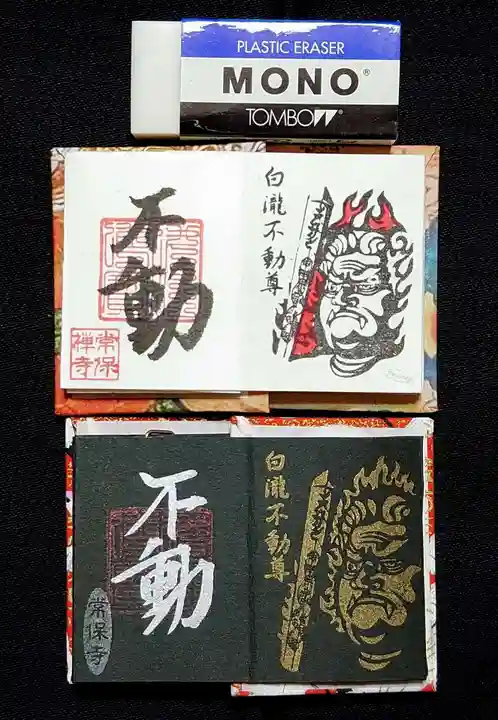 PLASTIC ERASER
MONO®
TOMBOW
不動
常保
禅寺
白瀧不動尊
不動
常保寺
白瀧不動尊